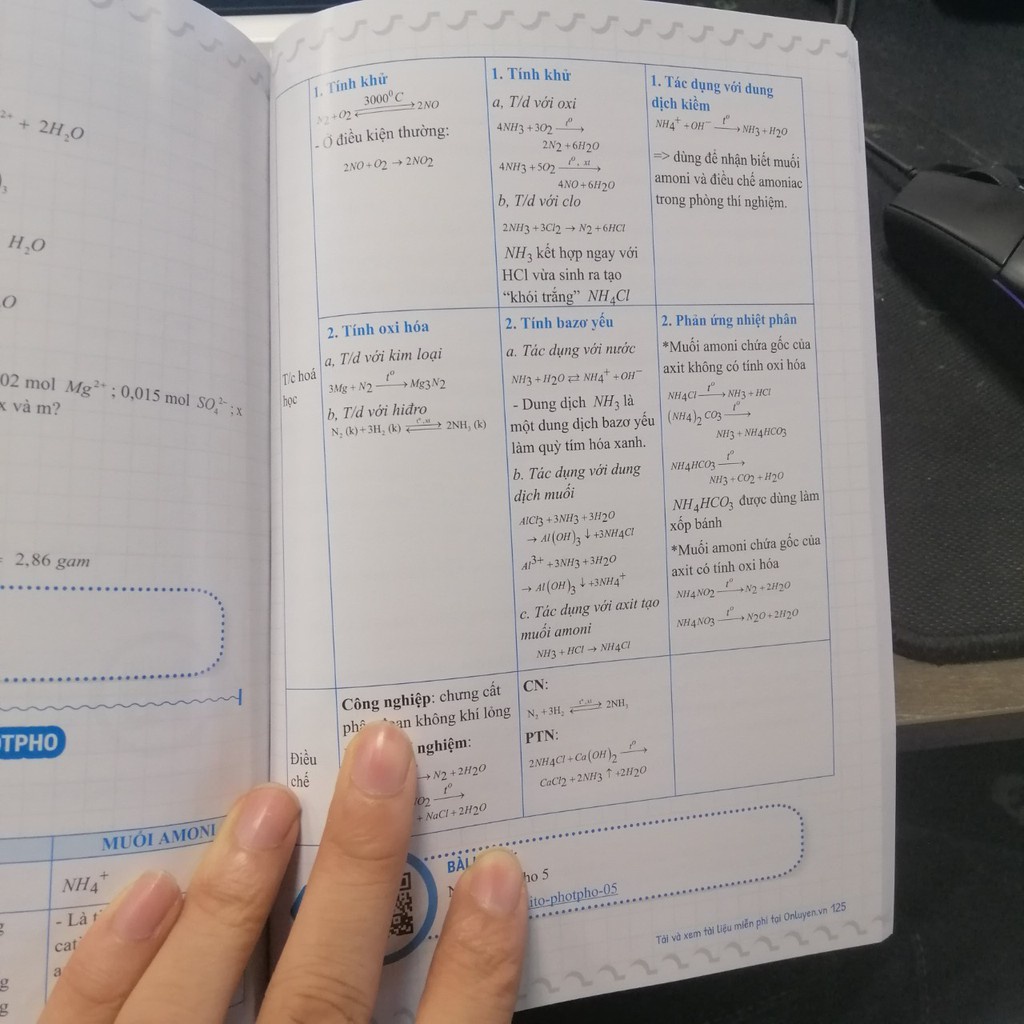 ²⁺ + 2H₂O
)₃
H₂O
O
02 mol Mg²⁺ ; 0,015 mol SO₄²⁻ ; x
x và m?
= 2,86 gam
OTPHO
MUỐI AMONI
NH₄⁺
- Là
cat
a
g
g
g
1. Tính khử
N₂ + O₂ ⇌ 2NO
3000⁰C
- Ở điều kiện thường:
2NO + O₂ → 2NO₂
1. Tính khử
a, T/d với oxi
4NH₃ + 3O₂ —t°→
2N₂ + 6H₂O
4NH₃ + 5O₂ —t°, xt→
4NO + 6H₂O
b, T/d với clo
2NH₃ + 3Cl₂ → N₂ + 6HCl
NH₃ kết hợp ngay với
HCl vừa sinh ra tạo
“khói trắng” NH₄Cl
1. Tác dụng với dung
dịch kiềm
NH₄⁺ + OH⁻ —t°→ NH₃ + H₂O
=> dùng để nhận biết muối
amoni và điều chế amoniac
trong phòng thí nghiệm.
T/c hoá
học
2. Tính oxi hóa
a, T/d với kim loại
3Mg + N₂ —t°→ Mg₃N₂
b, T/d với hiđro
N₂ (k) + 3H₂ (k) ⇌ 2NH₃ (k)
2. Tính bazơ yếu
a. Tác dụng với nước
NH₃ + H₂O ⇄ NH₄⁺ + OH⁻
- Dung dịch NH₃ là
một dung dịch bazơ yếu
làm quỳ tím hóa xanh.
b. Tác dụng với dung
dịch muối
AlCl₃ + 3NH₃ + 3H₂O
→ Al(OH)₃ ↓ +3NH₄Cl
Al³⁺ + 3NH₃ + 3H₂O
→ Al(OH)₃ ↓ +3NH₄⁺
c. Tác dụng với axit tạo
muối amoni
NH₃ + HCl → NH₄Cl
2. Phản ứng nhiệt phân
*Muối amoni chứa gốc của
axit không có tính oxi hóa
NH₄Cl —t°→ NH₃ + HCl
(NH₄)₂ CO₃ —t°→
NH₃ + NH₄HCO₃
NH₄HCO₃ —t°→
NH₃ + CO₂ + H₂O
NH₄HCO₃ được dùng làm
xốp bánh
*Muối amoni chứa gốc của
axit có tính oxi hóa
NH₄NO₂ —t°→ N₂ + 2H₂O
NH₄NO₃ —t°→ N₂O + 2H₂O
Điều
chế
Công nghiệp: chưng cất
không khí lỏng
nghiệm:
→ N₂ + 2H₂O
O₂ —t°→
+ NaCl + 2H₂O
CN:
N₂ + 3H₂ ⇌ 2NH₃
PTN:
2NH₄Cl + Ca(OH)₂ —t°→
CaCl₂ + 2NH₃ ↑ +2H₂O
BÀI
ho 5
ito-photpho-05
Tải và xem tài liệu miễn phí tại Onluyen.vn 125